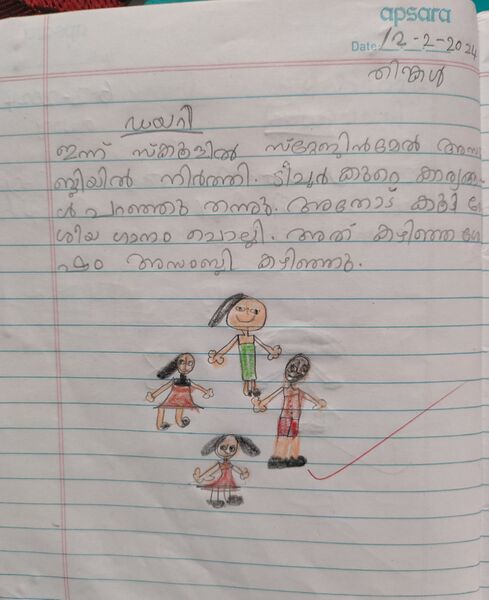 apsara
Date: 12-2-2024
തിങ്കൾ
ഡയറി
ഇന്ന് സ്കൂളിൽ സ്റ്റേജിൻമേൽ അസം
ബ്ലിയിൽ നിർത്തി. ടീച്ചർ കുറെ കാര്യങ്ങ
ൾ പറഞ്ഞു തന്നു. അതോട് കൂടി ദേ
ശീയ ഗാനം ചൊല്ലി. അത് കഴിഞ്ഞ ശേ
ഷം അസംബ്ലി കഴിഞ്ഞു.